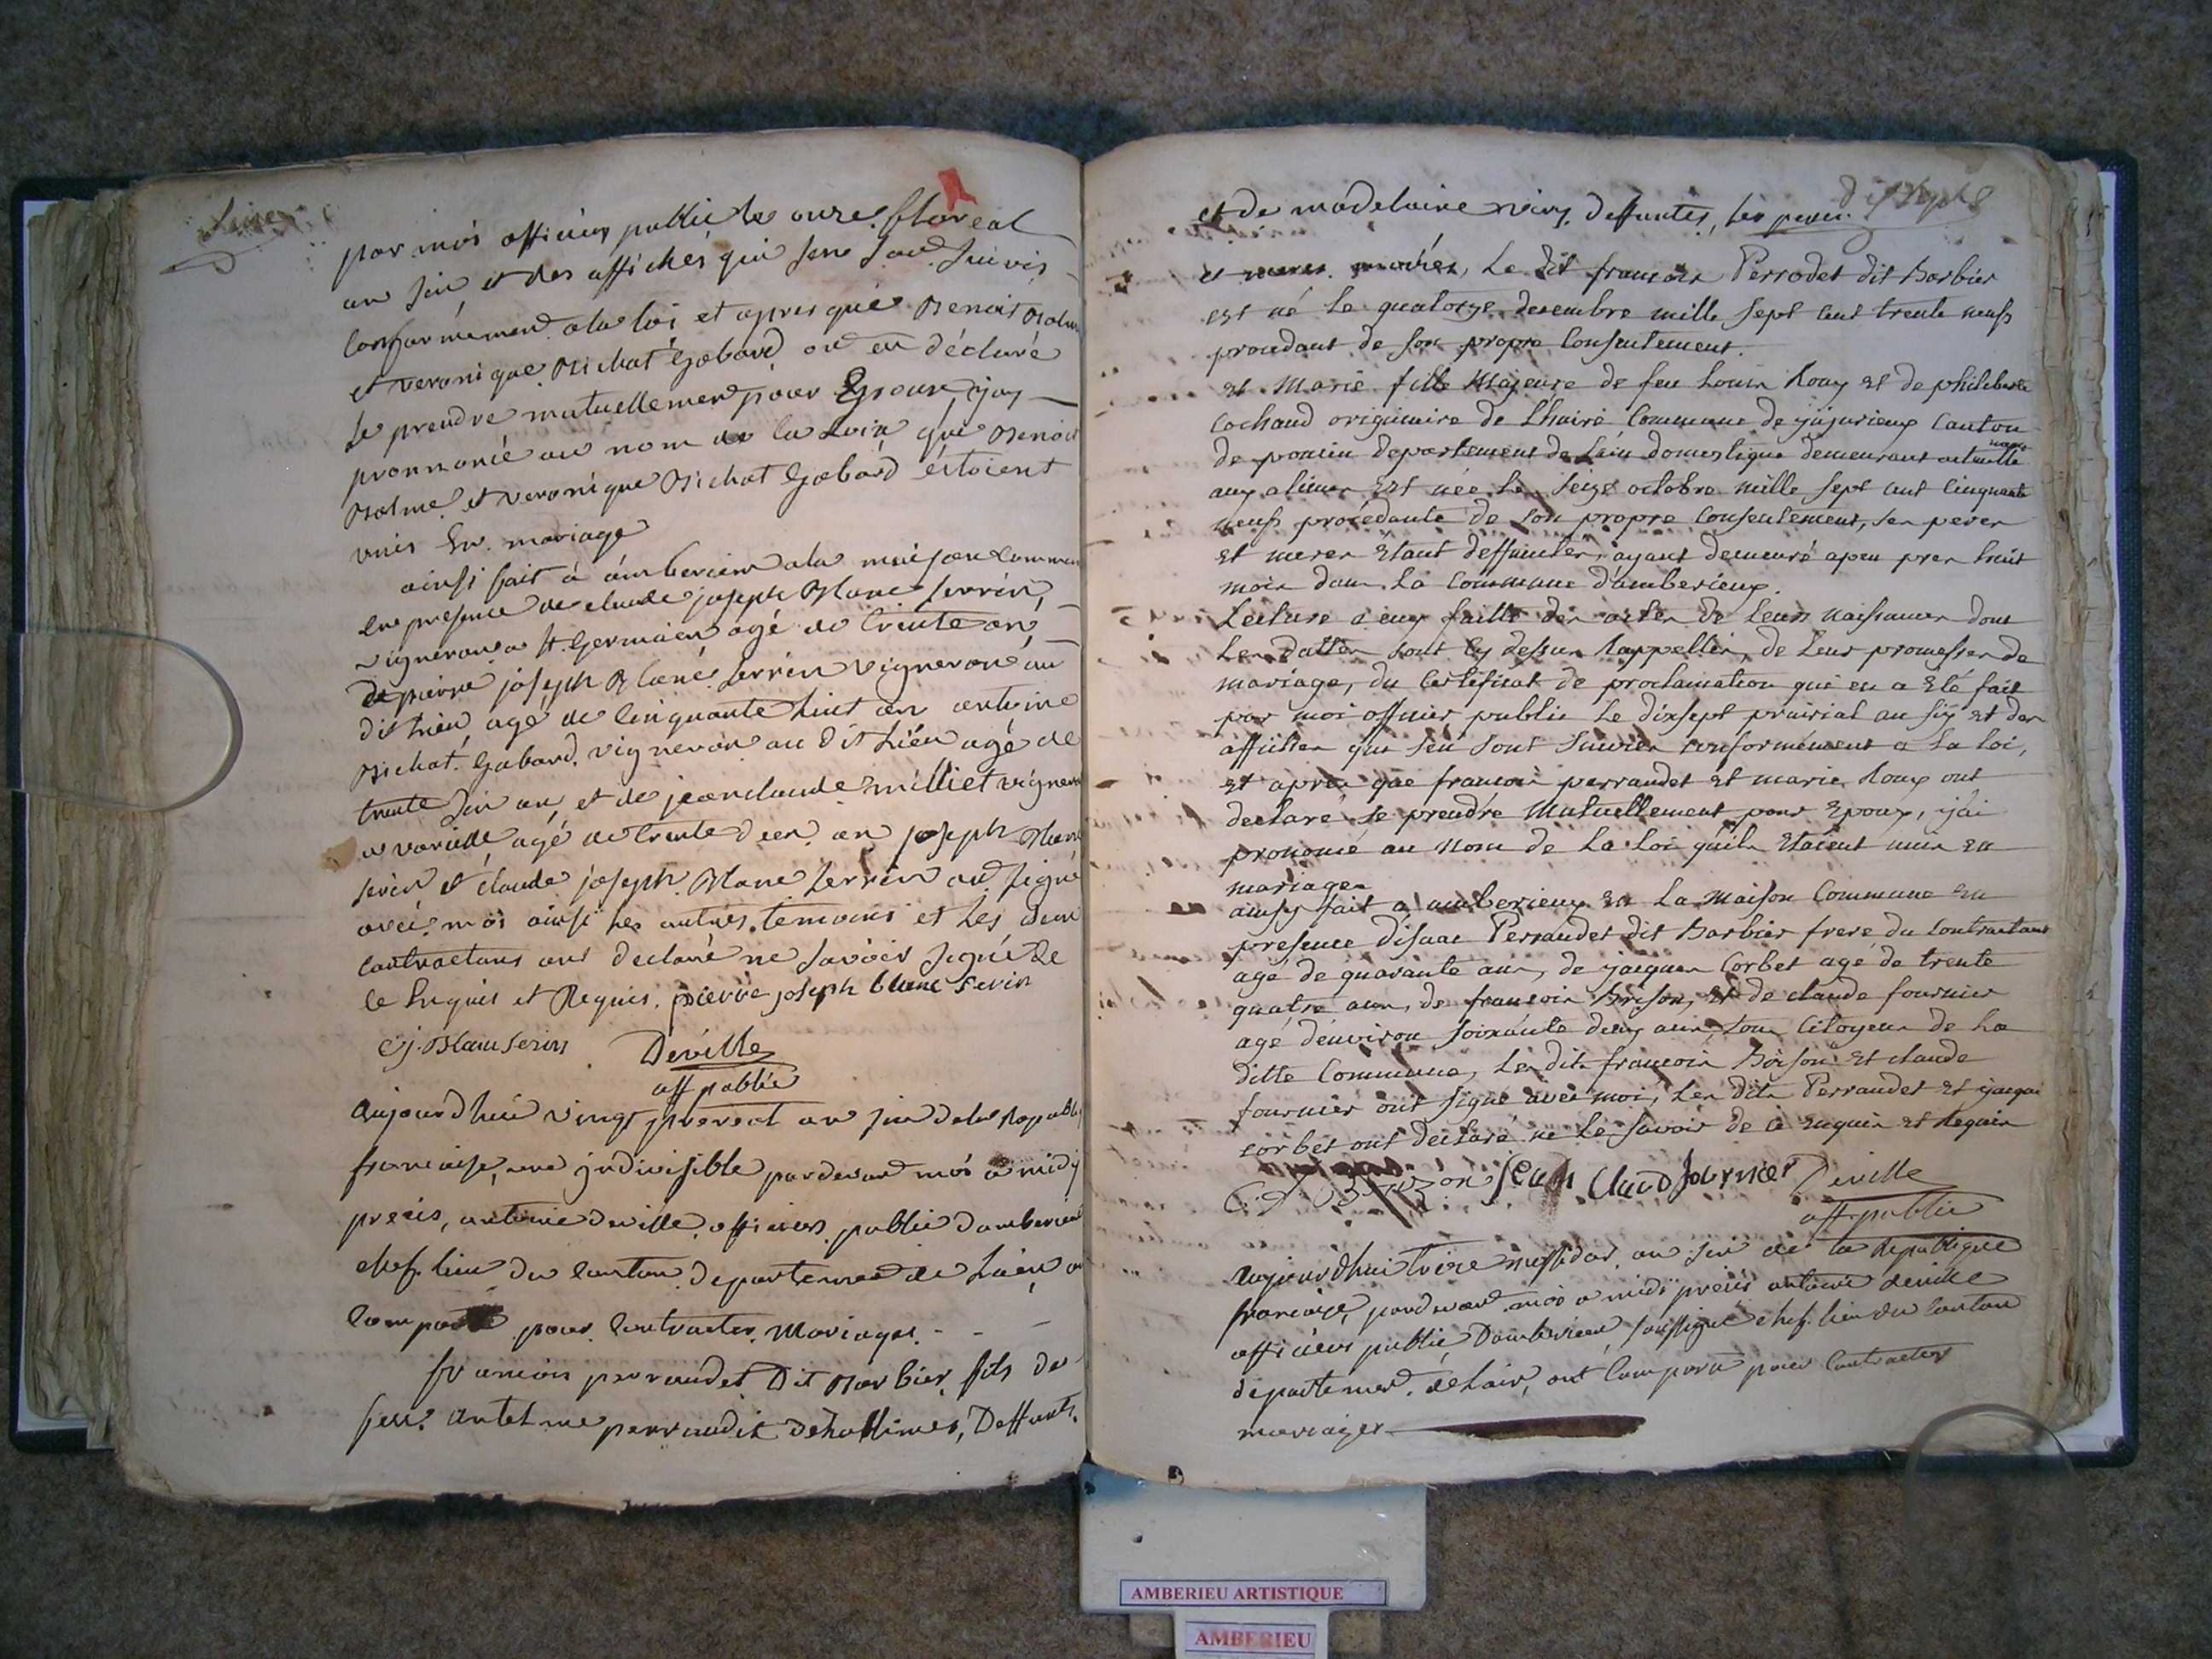 par moi officier public le onze floreal
an six et des affiches qui sen sont suivis
conformement a la loi et apres que Benoit Balme
et veronique Michat Gabard ont en déclaré
se prendre mutuellement pour Epoux, jay
prononcé au nom de la Loix que Benoit
Balme et veronique Michat Gabard étoient
unis En mariage
ainsi fait à amberieux a la maison commune
en presence de claude joseph Blanc serrin,
vigneron a st Germain agé de trente an,
de pierre joseph Blanc serrin vigneron au
dit lieu agé de cinquante huit an antoine
Michat Gabard vigneron au dit lieu agé de
trente six an, et de jeanclaude milliet vigneron
a agé de trente deux an joseph Blanc
serin et claude joseph Blanc serrin ont signé
avec moi ainsi les autres temoins et les deux
contractans ont declaré ne savoir signé de
ce Enquis et Requis. pierre joseph blanc serin
Cj. Blanc Serin Deville
off public
aujourdhui vingt an six de la Republique
francaise, une indivisible pardevant moi a midy
precis, antoine deville officier public damberieux
chef lieu du canton departement de Lain ont
comparu pour contracter Mariages - - -
francois perraudet Dit Barbier, fils de
feu antelme perraudet Deffunts
et de madelaine deffuntes, ses peres
et meres Le dit francois Perrodet dit Barbier
est né le quatorze decembre mille sept cent trente neuf
procedant de son propre Consentement.
et Marie fille Majeure de feu Louis Roux et de philiberte
Cochaud originaire de Lhuire Commune de jujurieux Canton
de poncin departement de Lain domestique demeurant actuelle
ment
aux alimes Est née Le seize octobre mille sept cent Cinquante
neuf procédante de son propre Consentement, ses peres
et meres Etant deffuntes, ayant demeuré apeu pres huit
mois dans La Commune d'amberieux.
Lecture a eux faitte des actes de Leurs naissances dont
Les dattes sont Cy dessus Rappellés, de Leurs promesses de
mariage, du Certificat de proclamation qui en a Eté fait
par moi officier public Le dixsept prairial an six et des
affiches qui sen sont suivies conformément a La Loi,
et apres que francois perraudet et marie Roux ont
declaré se prendre Mutuellement pour Epoux, j'ai
prononcé au Nom de La Loi qu'ils Etoient unis en
mariages
ainsy fait a amberieux en La Maison Commune en
presence disaac Perraudet dit Barbier frere du Contractant
agé de quarante ans, de jacques Corbet agé de trente
quatre ans, de francois Brison, et de claude fournier
agé denviron soixante deux ans, tous Citoyens de La
ditte Commune, Les dits francois Brison et claude
fournier ont signé avec moi, Les dits Perraudet et jacques
corbet ont declaré ne Le savoir de ce Enquis et Requis
jean Claud fournier Deville
off. public
aujourdhui treize messidor an six de la Republique
francaise, pardevant moi a midi precis antoine deville
officier public Damberieux soussigné chef lieu du Canton
departement de Lain, ont Comparu pour Contracter
mariages
AMBERIEU ARTISTIQUE
AMBERIEU